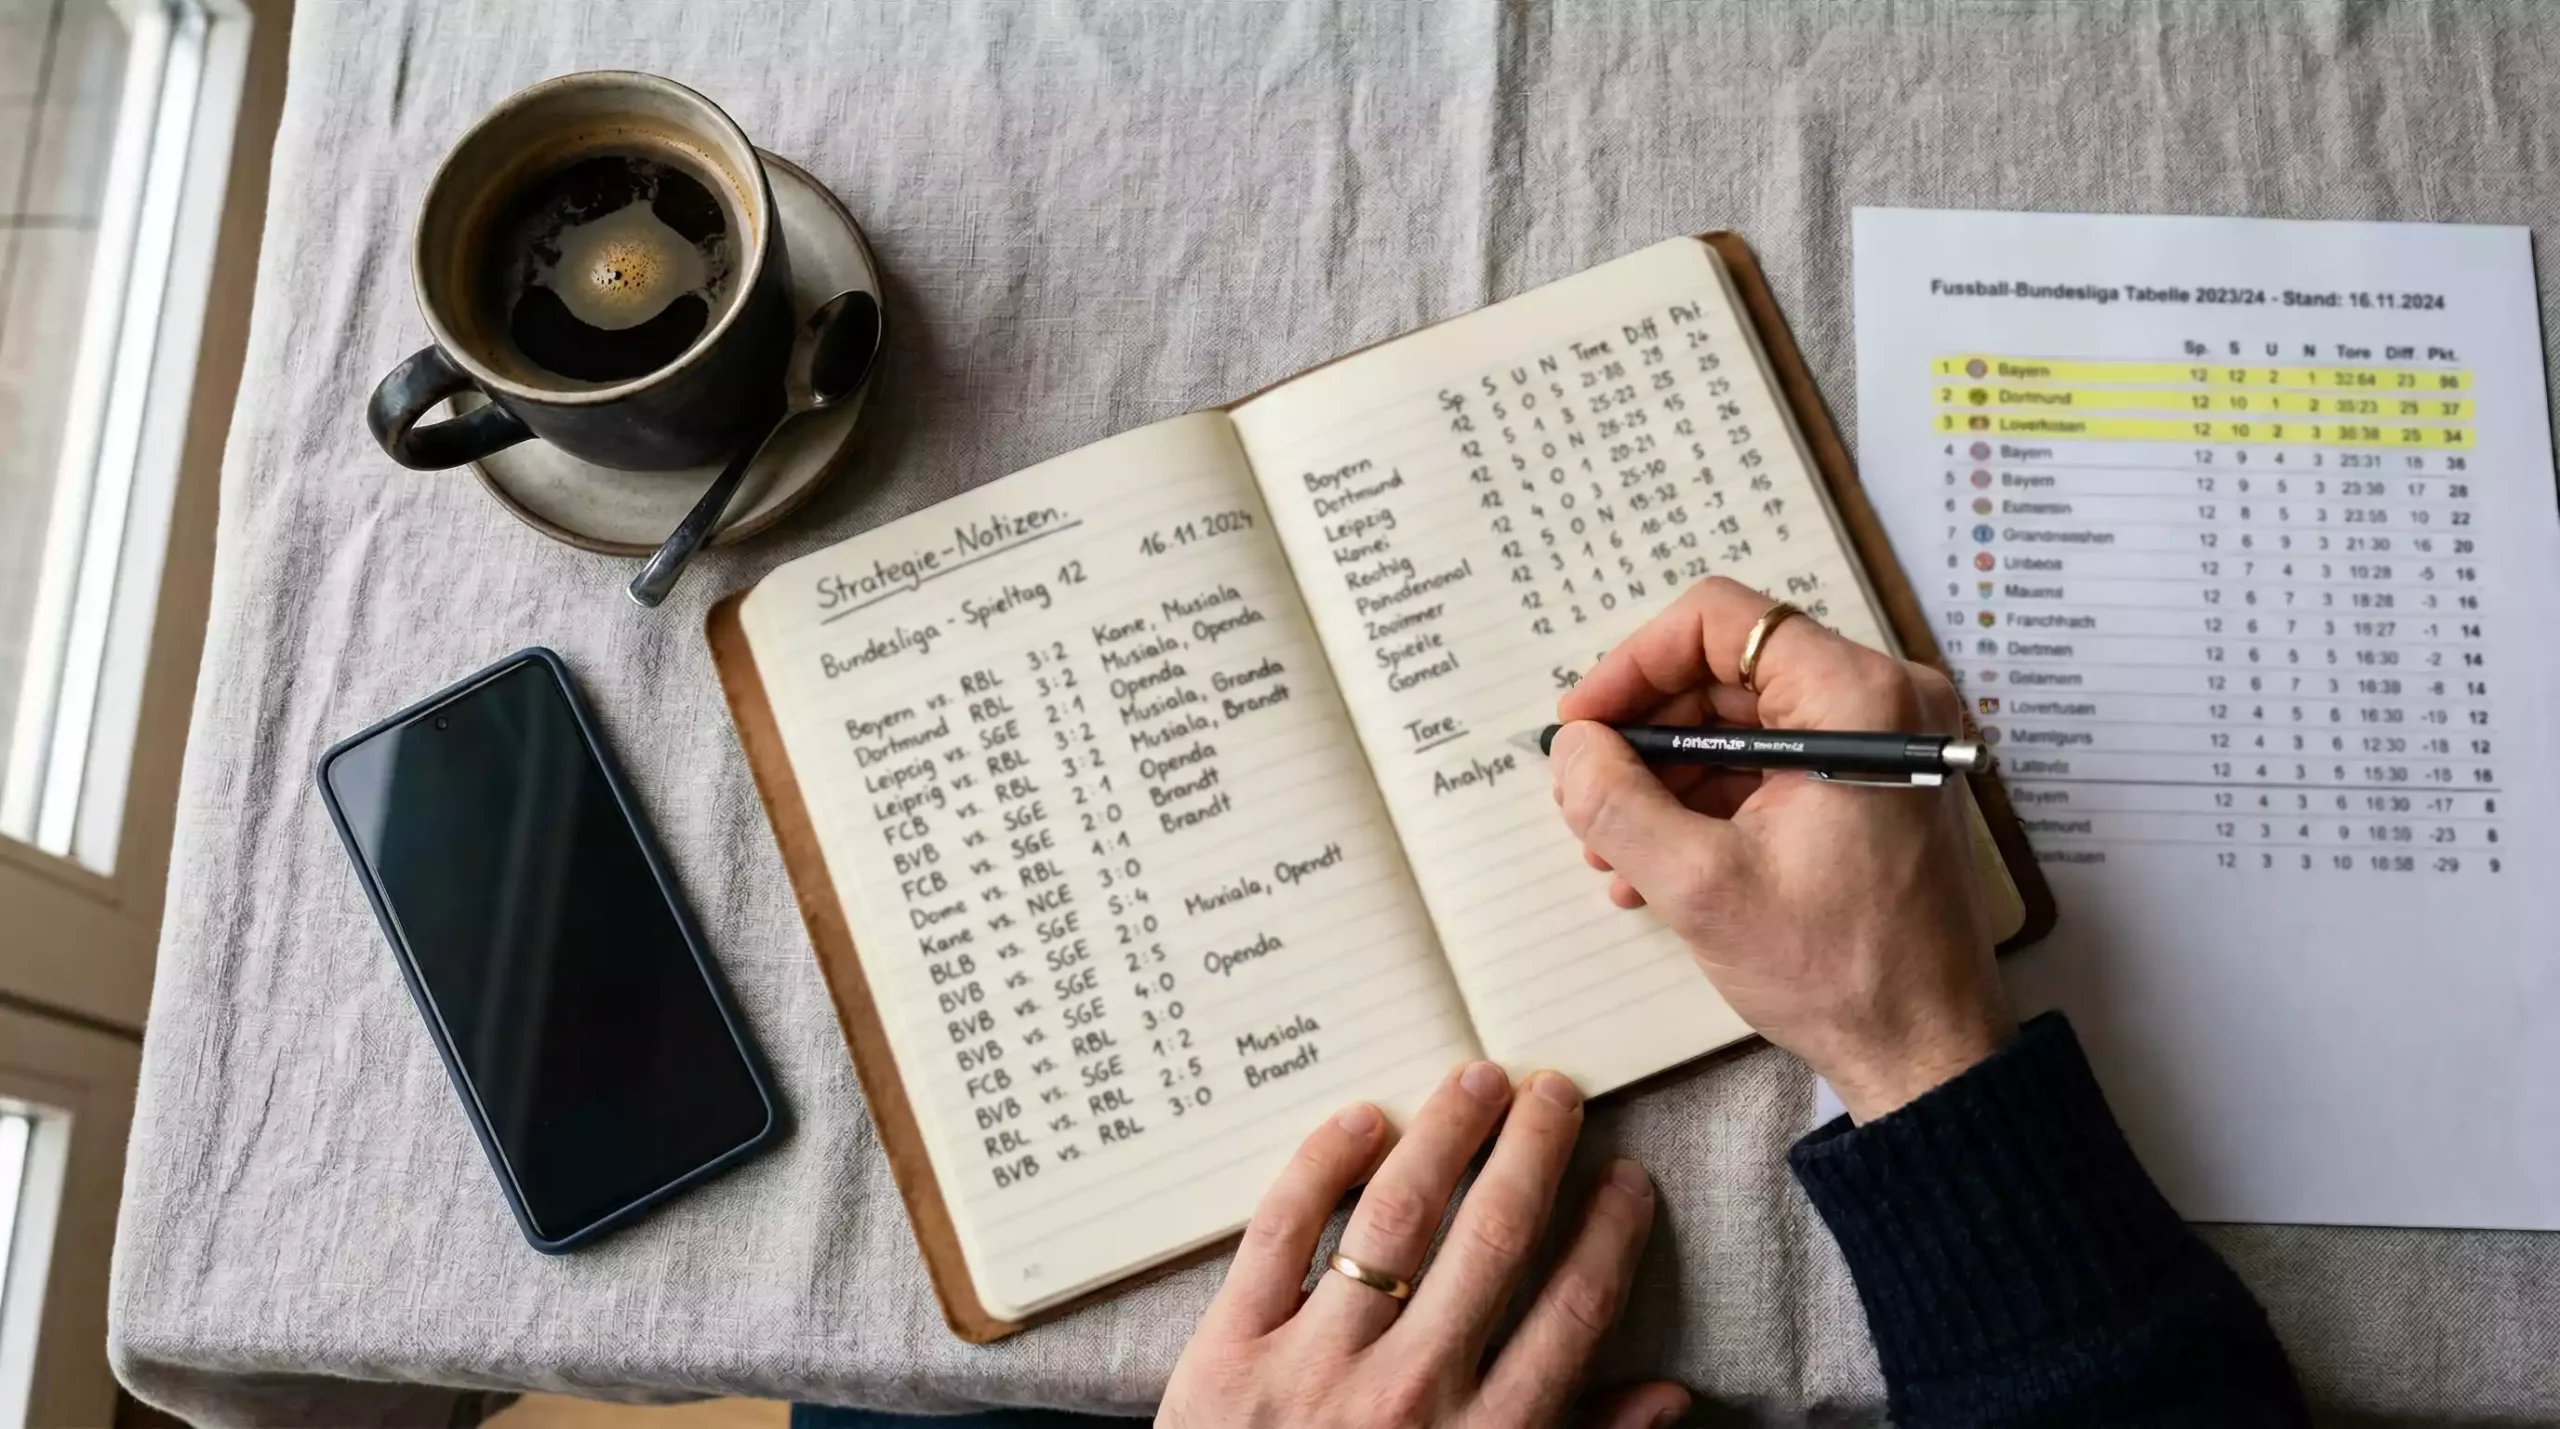 Strategie-Notizen.
16.11.2024
Bundesliga - Spieltag 12
Beyern vs. RBL 3:2 Kane, Musiala
Dortmund RBL 3:2 Musiala, Openda
Leipcig vs. SGE 2:1 Openda
Leiprig vs. RBL 3:2 Musiala, Granda
FCB vs. RBL 3:2 Musiala, Brandt
BVB vs. SGE 2:1 Openda
FCB vs. SGE 2:0 Brandt
Dome vs. RBL 1:1 Brandt
Kane vs. NCE 3:0
BLB vs. SGE 5:4
BVB vs. SGE 2:0 Muxiala, Opendt
BVB vs. SGE 2:5
BVB vs. SGE 4:0 Openda
FCB vs. RBL 3:0
BVB vs. SGE 1:2
RBL vs. RBL 2:5 Musiola
BVB vs. RBL 3:0 Brandt
Sp S U N Tore Diff Pkt.
Bayern 12 5 0 5 28 24
Dertmund 12 5 1 3 25-22 25 25
Leipzig 12 5 0 N 26-25 15 25
Konei 12 4 0 1 20-21 12 26
12 4 0 3 5 25
12 5 0 N 15-32 -8 15
12 3 1 6 16-15 -3 15
Spieële 12 1 1 5 16-12 -13 17
Gomeal 12 2 0 N 8-22 -24 5
Sp. Pbt.
Tore.
Analyse
Fussball-Bundesliga Tabelle 2023/24 - Stand: 16.11.2024
Sp. S U N Tore Diff. Pkt.
1 Bayern 12 12 2 1 32:64 23 96
2 Dortmund 12 10 1 2 35:23 29 37
3 Loverkusen 12 10 2 3 25 34
4 Bayern 12 9 4 3 25:31 18 36
5 Bayern 12 9 5 3 23:30 17 28
6 12 8 5 3 23:55 10 22
7 12 6 9 3 21:30 16 20
8 12 7 4 3 10:28 -5 16
9 12 6 7 3 18:28 -3 16
10 Franchhach 12 6 7 3 16:27 -1 14
11 Dertmen 12 6 5 5 16:30 -2 14
Gelamern 12 6 7 3 16:38 -8 14
Lovertusen 12 4 5 6 16:30 -19 12
Mamiguns 12 4 3 6 12:30 -18 12
12 4 3 5 15:30 -15 16
Bayern 12 4 3 6 16:30 -17 8
ortmund 12 3 4 9 -23 6
erkusen 12 3 3 10 16:58 -29 9